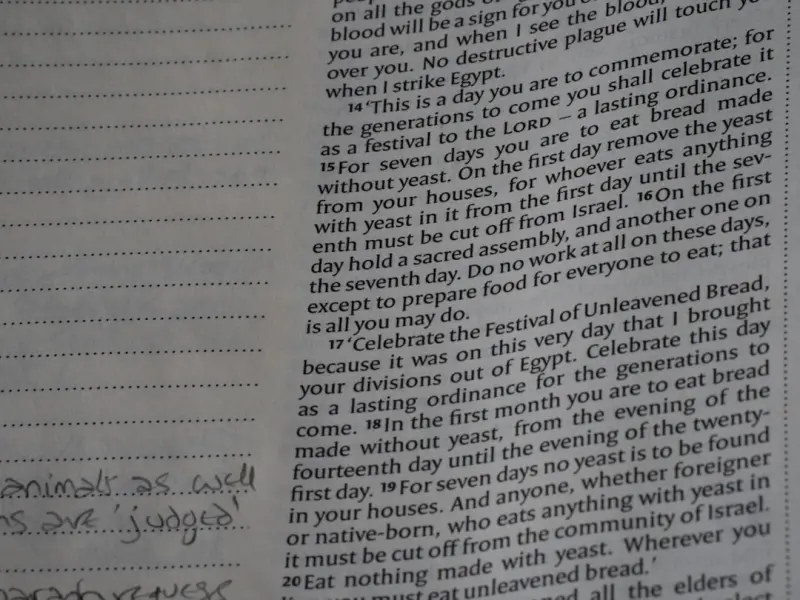 on all the gods
blood will be a sign for you
you are, and when I see the blood,
over you. No destructive plague will touch
when I strike Egypt.
14 ‘This is a day you are to commemorate; for
the generations to come you shall celebrate it
as a festival to the LORD – a lasting ordinance.
15 For seven days you are to eat bread made
without yeast. On the first day remove the yeast
from your houses, for whoever eats anything
with yeast in it from the first day until the sev-
enth must be cut off from Israel. 16 On the first
day hold a sacred assembly, and another one on
the seventh day. Do no work at all on these days,
except to prepare food for everyone to eat; that
is all you may do.
17 ‘Celebrate the Festival of Unleavened Bread,
because it was on this very day that I brought
your divisions out of Egypt. Celebrate this day
as a lasting ordinance for the generations to
come. 18 In the first month you are to eat bread
made without yeast, from the evening of the
fourteenth day until the evening of the twenty-
first day. 19 For seven days no yeast is to be found
in your houses. And anyone, whether foreigner
or native-born, who eats anything with yeast in
it must be cut off from the community of Israel.
20 Eat nothing made with yeast. Wherever you
must eat unleavened bread.’
all the elders of
animals as well
are ‘judged’